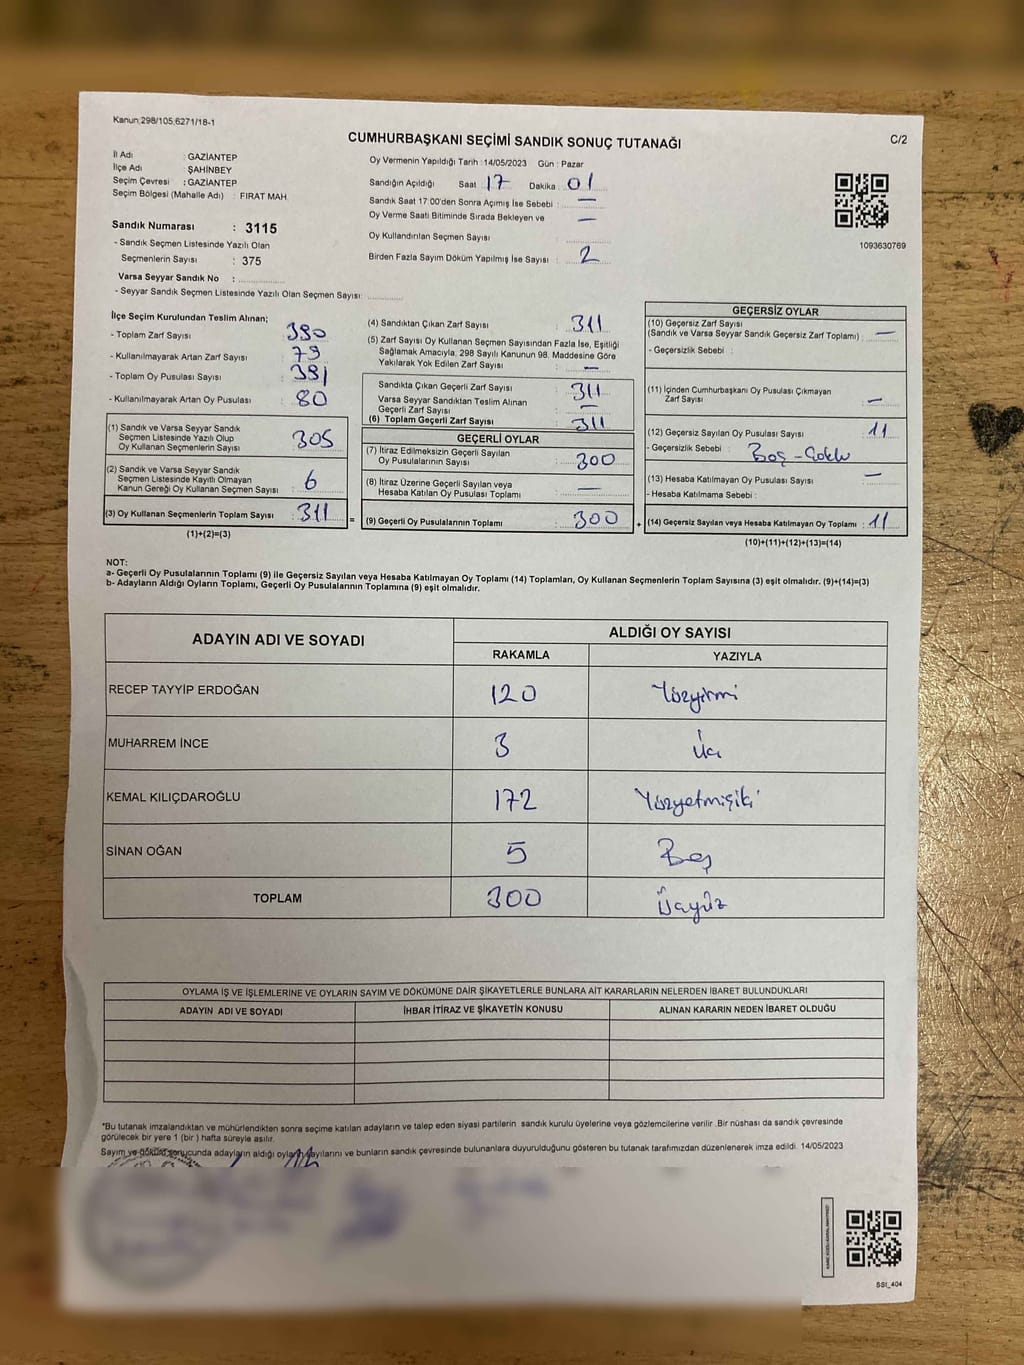 Kanun;298/105,6271/18-1
CUMHURBAŞKANI SEÇİMİ SANDIK SONUÇ TUTANAĞI
C/2
İl Adı : GAZİANTEP
İlçe Adı : ŞAHİNBEY
Seçim Çevresi : GAZİANTEP
Seçim Bölgesi (Mahalle Adı) : FIRAT MAH.
Sandık Numarası : 3115
- Sandık Seçmen Listesinde Yazılı Olan
Seçmenlerin Sayısı : 375
Varsa Seyyar Sandık No :
- Seyyar Sandık Seçmen Listesinde Yazılı Olan Seçmen Sayısı:
Oy Vermenin Yapıldığı Tarih : 14/05/2023 Gün : Pazar
Sandığın Açıldığı Saat 17 Dakika 01
Sandık Saat 17:00'den Sonra Açımış İse Sebebi : —
Oy Verme Saati Bitiminde Sırada Bekleyen ve —
Oy Kullandırılan Seçmen Sayısı
Birden Fazla Sayım Döküm Yapılmış İse Sayısı : 2
1093630769
İlçe Seçim Kurulundan Teslim Alınan;
- Toplam Zarf Sayısı : 390
- Kullanılmayarak Artan Zarf Sayısı : 79
- Toplam Oy Pusulası Sayısı : 391
- Kullanılmayarak Artan Oy Pusulası : 80
(1) Sandık ve Varsa Seyyar Sandık
Seçmen Listesinde Yazılı Olup
Oy Kullanan Seçmenlerin Sayısı : 305
(2) Sandık ve Varsa Seyyar Sandık
Seçmen Listesinde Kayıtlı Olmayan
Kanun Gereği Oy Kullanan Seçmen Sayısı : 6
(3) Oy Kullanan Seçmenlerin Toplam Sayısı : 311
(1)+(2)=(3)
(4) Sandıktan Çıkan Zarf Sayısı : 311
(5) Zarf Sayısı Oy Kullanan Seçmen Sayısından Fazla İse, Eşitliği
Sağlamak Amacıyla, 298 Sayılı Kanunun 98. Maddesine Göre
Yakılarak Yok Edilen Zarf Sayısı : —
Sandıkta Çıkan Geçerli Zarf Sayısı : 311
Varsa Seyyar Sandıktan Teslim Alınan
Geçerli Zarf Sayısı : —
(6) Toplam Geçerli Zarf Sayısı : 311
GEÇERLİ OYLAR
(7) İtiraz Edilmeksizin Geçerli Sayılan
Oy Pusulalarının Sayısı : 300
(8) İtiraz Üzerine Geçerli Sayılan veya
Hesaba Katılan Oy Pusulası Toplamı : —
= (9) Geçerli Oy Pusulalarının Toplamı : 300 +
GEÇERSİZ OYLAR
(10) Geçersiz Zarf Sayısı
(Sandık ve Varsa Seyyar Sandık Geçersiz Zarf Toplamı) : —
- Geçersizlik Sebebi :
(11) İçinden Cumhurbaşkanı Oy Pusulası Çıkmayan
Zarf Sayısı : —
(12) Geçersiz Sayılan Oy Pusulası Sayısı : 11
- Geçersizlik Sebebi : Boş - Çoklu
(13) Hesaba Katılmayan Oy Pusulası Sayısı : —
- Hesaba Katılmama Sebebi :
(14) Geçersiz Sayılan veya Hesaba Katılmayan Oy Toplamı : 11
(10)+(11)+(12)+(13)=(14)
NOT:
a- Geçerli Oy Pusulalarının Toplamı (9) ile Geçersiz Sayılan veya Hesaba Katılmayan Oy Toplamı (14) Toplamları, Oy Kullanan Seçmenlerin Toplam Sayısına (3) eşit olmalıdır. (9)+(14)=(3)
b- Adayların Aldığı Oyların Toplamı, Geçerli Oy Pusulalarının Toplamına (9) eşit olmalıdır.
ADAYIN ADI VE SOYADI
ALDIĞI OY SAYISI
RAKAMLA YAZIYLA
RECEP TAYYİP ERDOĞAN 120 Yüzyirmi
MUHARREM İNCE 3 Üç
KEMAL KILIÇDAROĞLU 172 Yüzyetmişiki
SİNAN OĞAN 5 Beş
TOPLAM 300 Üçyüz
OYLAMA İŞ VE İŞLEMLERİNE VE OYLARIN SAYIM VE DÖKÜMÜNE DAİR ŞİKAYETLERLE BUNLARA AİT KARARLARIN NELERDEN İBARET BULUNDUKLARI
ADAYIN ADI VE SOYADI İHBAR İTİRAZ VE ŞİKAYETİN KONUSU ALINAN KARARIN NEDEN İBARET OLDUĞU
*Bu tutanak imzalandıktan ve mühürlendikten sonra seçime katılan adayların ve talep eden siyasi partilerin sandık kurulu üyelerine veya gözlemcilerine verilir. Bir nüshası da sandık çevresinde
görülecek bir yere 1 (bir ) hafta süreyle asılır.
Sayım ve döküm sonucunda adayların aldığı oyların sayılarını ve bunların sandık çevresinde bulunanlara duyurulduğunu gösteren bu tutanak tarafımızdan düzenlenerek imza edildi. 14/05/2023
SSI_404